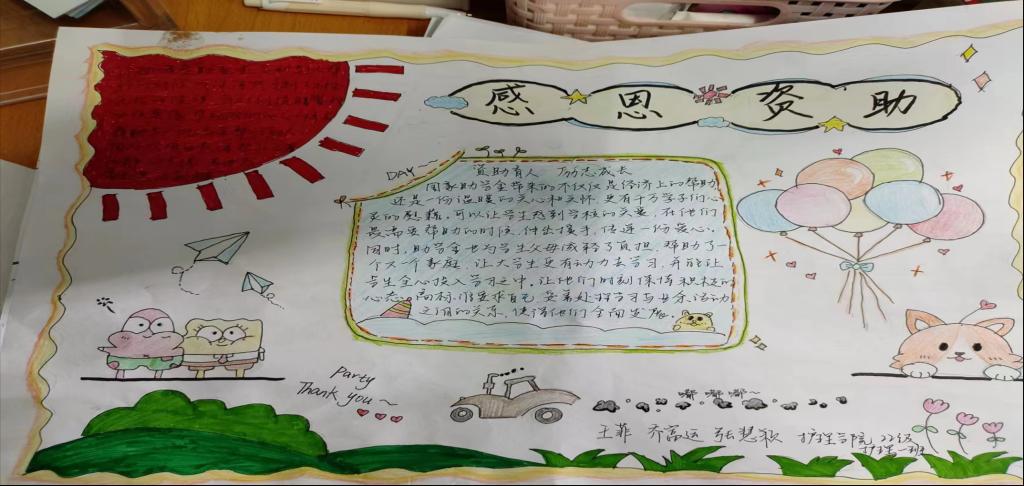 感恩资助
DAY
资助育人 励志成长
国家助学金带来的不仅仅是经济上的帮助,
还是一份温暖的关心和关怀,更有千万学子们心
灵的慰藉,可以让学生感到学校的关爱,在他们
最需要帮助的时候,伸出援手,传递一份爱心。
同时,助学金也为学生父母减轻了负担,帮助了一
个又一个家庭,让大学生更有动力去学习,并能让
学生全心投入学习之中,让他们时刻保持积极的
心态。高标准要求自己,妥善处理学习与业余活动
之间的关系,使得他们全面发展。
Party
Thank you~
嘟嘟嘟~
王菲 乔富运 张慧颖 护理学院22级
护理一班